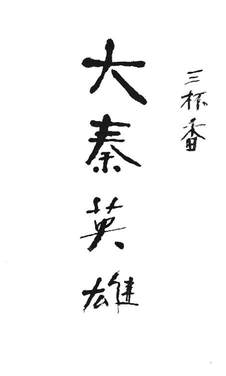 三杯番
大秦英雄